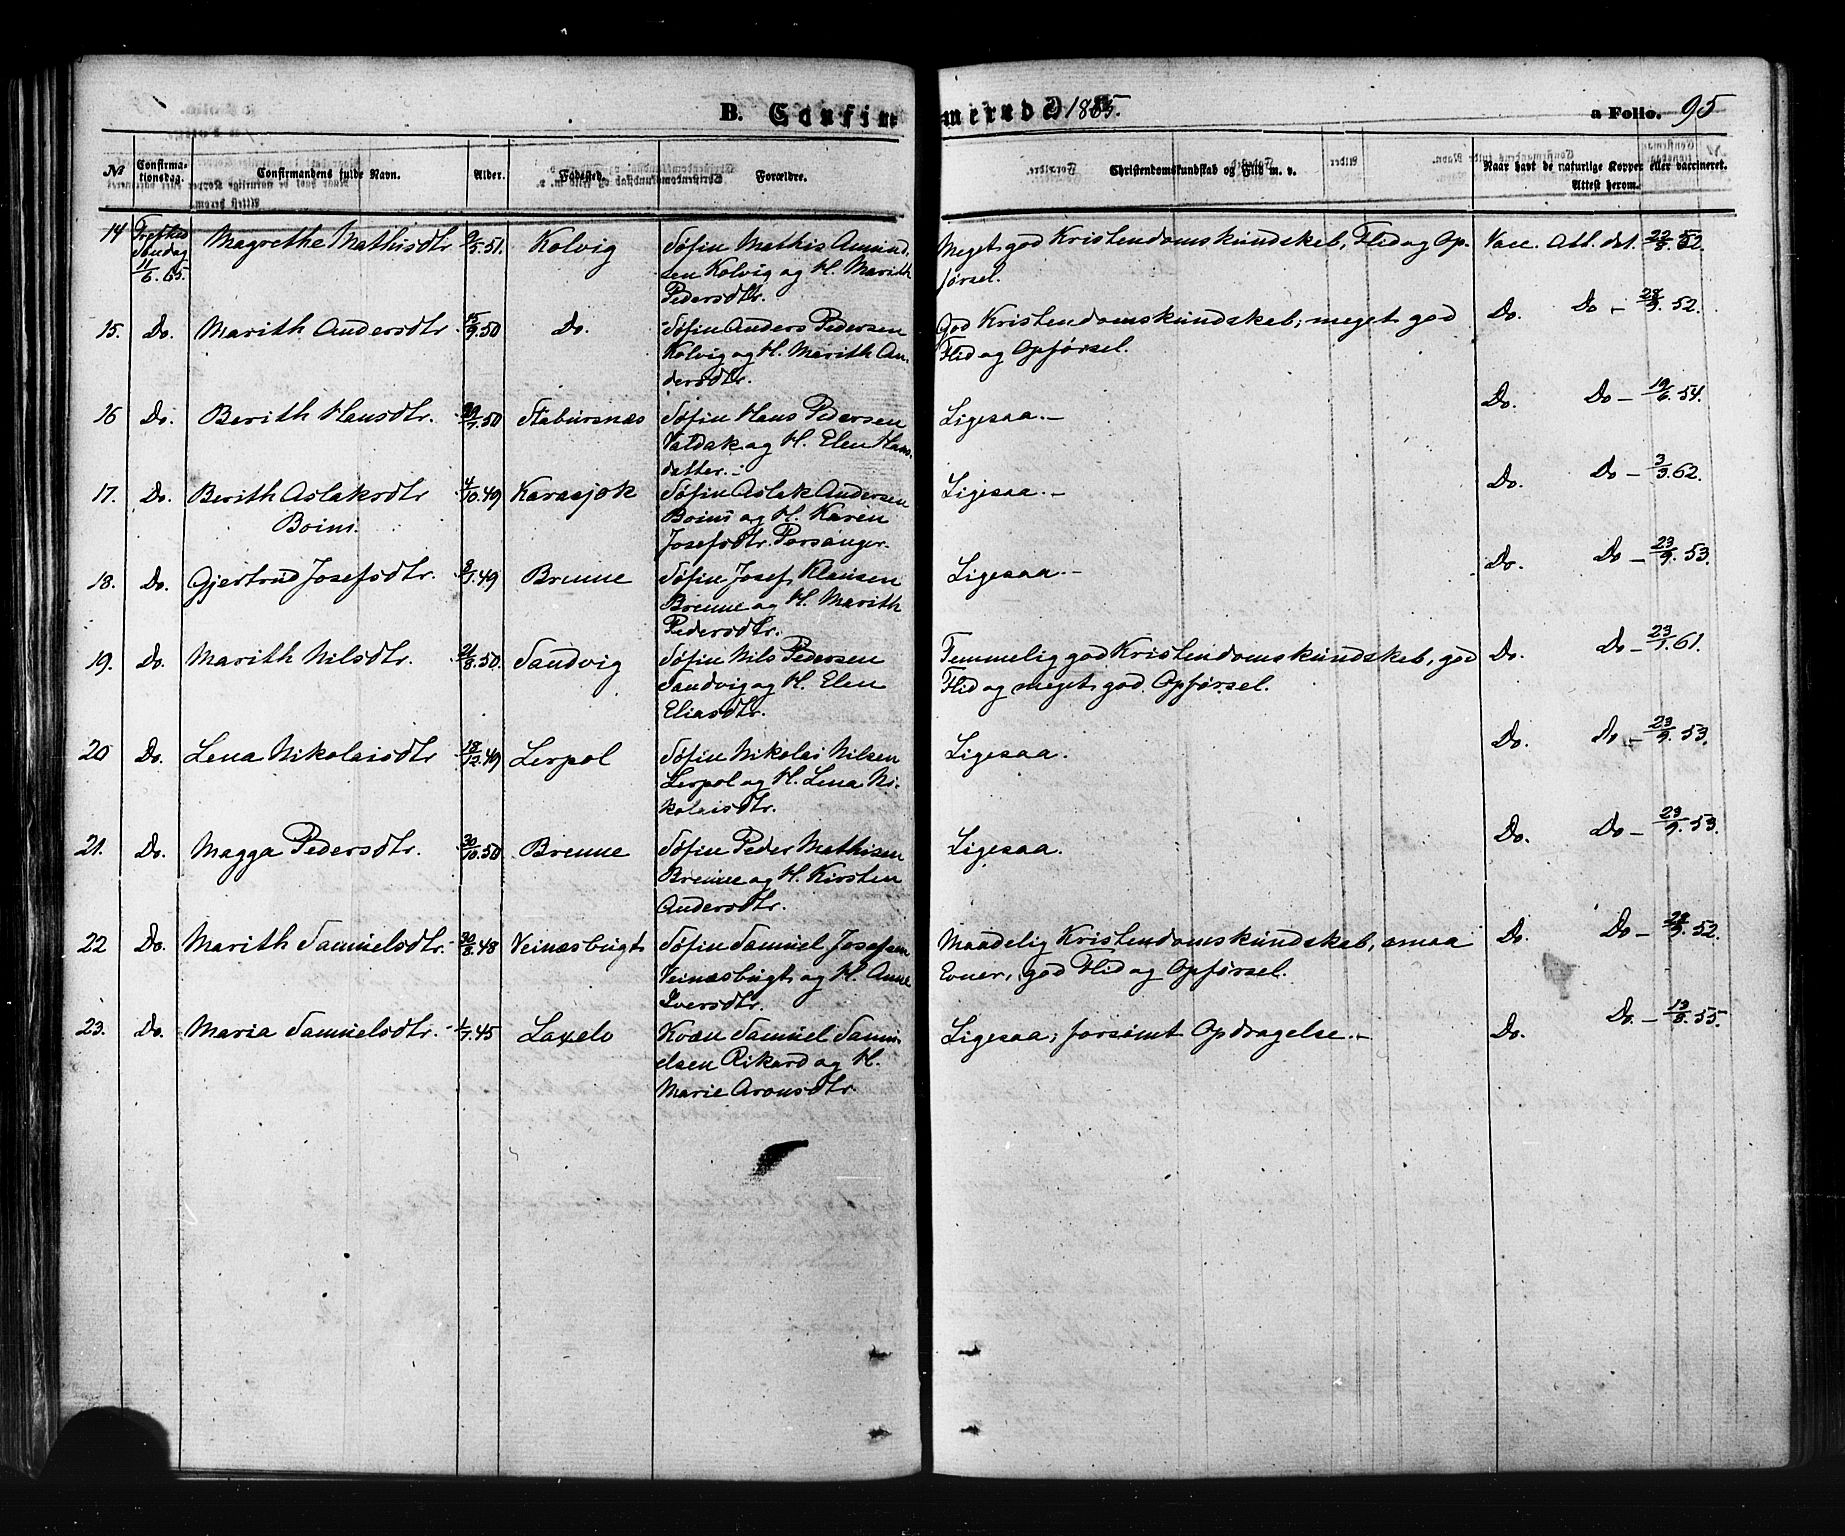 B. Confirmerede 1865. a Folio. 95
No Confirmationsdag. Confirmandens fulde Navn. Alder. Fødested. Forældre. Christendomskundskab og Flid m. v. Naar havt de naturlige Kopper eller vaccineret. Attest herom.
14 Trefthed Søndag 11/6 65. Magrethe Mathisdtr 51. Kolvig Søfin Mathis Amund- Meget god Kristendomskundskab, Flid og Op- Vacc. Att. dat. 22/8 52.
sen Kolvig og H. Marith førsel.
Pedersdtr.
15. Do. Marith Andersdtr 15/9 50 Do. Søfin Anders Pedersen God Kristendomskundskab; meget god Do. Do - 52.
Kolvig og H. Marith An- Flid og Opførsel.
dersdtr.
16 Do. Berith Hansdtr. 50 Stabursnæs Søfin Hans Pedersen Ligesaa.- Do. Do - 19/6. 54.
Valdak og H. Elen Hans-
datter.-
17. Do. Berith Aslaksdtr 4/10. 49 Karasjok Søfin Aslak Andersen Ligesaa.- Do. Do - 3/3. 62.
Boini. Boini og H. Karen
Josefsdtr. Porsanger.
18. Do. Gjertrud Josefsdtr. 49 Brenne Søfin Josef Klausen Ligesaa.- Do. Do - 23/9. 53.
Brenne og H. Marith
Pedersdtr.
19. Do. Marith Nilsdtr. 21/8. 50. Sandvig Søfin Nils Pedersen Temmelig god Kristendomskundskab, god Do. Do - 23/1. 61.
Sandvig og H. Elen Flid og meget god Opførsel.
Eliasdtr.
20 Do. Lena Nikolaisdtr 18/12. 49 Lerpol Søfin Nikolai Nilsen Ligesaa. Do. Do - 23/9. 53.
Lerpol og H. Lena Ni-
kolaisdtr.
21. Do. Magga Pedersdtr. 30/10. 50 Brenne Søfin Peder Mathisen Ligesaa. Do. Do - 23/9. 53.
Brenne og H. Kirsten
Andersdtr.
22 Do. Marith Samuelsdtr. 30/8. 48 Veinæsbugt Søfin Samuel Josefsen Maadelig Kristendomskundskab, smaa Do. Do - 52.
Veinæsbugt og H. Anne Evner, god Flid og Opførsel.
Iversdtr.
23. Do. Maria Samuelsdtr. 1/7. 45 Laxelv Kvæn Samuel Samu- Ligesaa; forsømt Opdragelse.- Do. Do. - 13/8. 55.
elsen Rikard og H.
Marie Aronsdtr.